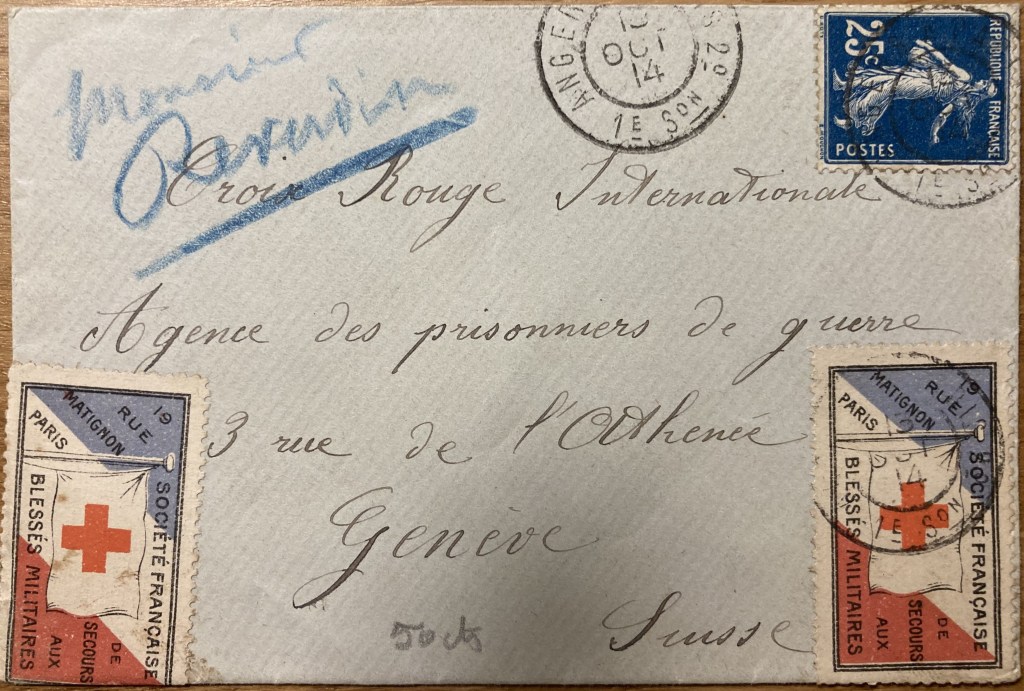 Monsieur
Reverdin
OCT
14
1E SON
25c
RÉPUBLIQUE FRANÇAISE
POSTES
Croix Rouge Internationale
Agence des prisonniers de guerre
3 rue de l'Athenée
Genève
Suisse
50 cts
19
RUE
MATIGNON
PARIS
SOCIÉTÉ FRANÇAISE
DE
SECOURS
AUX
BLESSÉS MILITAIRES
19
RUE
MATIGNON
PARIS
SOCIÉTÉ FRANÇAISE
DE
SECOURS
AUX
BLESSÉS MILITAIRES
14
1E SON